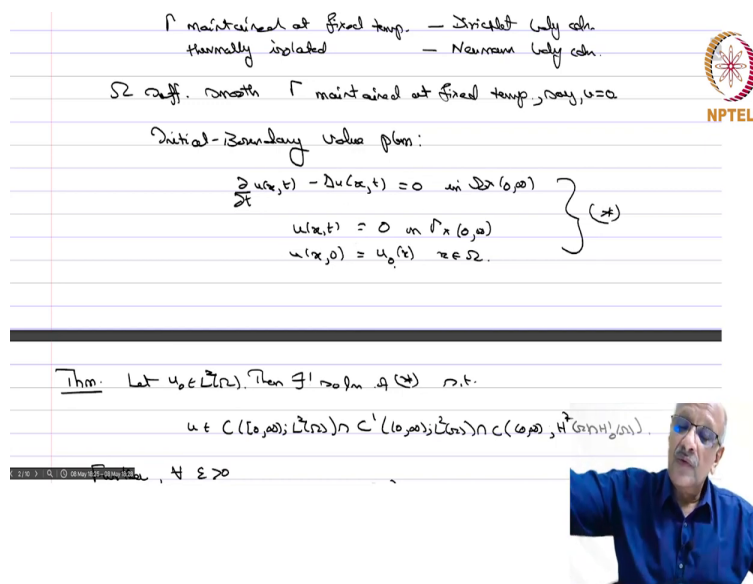 Γ maintained at fixed temp. — Dirichlet bdry cdn.
thermally isolated — Neumann bdry cdn.
Ω suff. smooth Γ maintained at fixed temp., say, u=0
NPTEL
Initial-Boundary value pbm:
∂/∂t u(x,t) - Δu(x,t) = 0 in Ω×(0,∞)
(*)
u(x,t) = 0 on Γ×(0,∞)
u(x,0) = u₀(x) x∈Ω.
Thm. Let u₀∈L²(Ω). Then ∃! soln of (*) s.t.
u ∈ C([0,∞);L²(Ω))∩ C¹((0,∞);L²(Ω))∩C((0,∞), H²(Ω)∩H¹₀(Ω)).
2/10
Further, ∀ ε>0